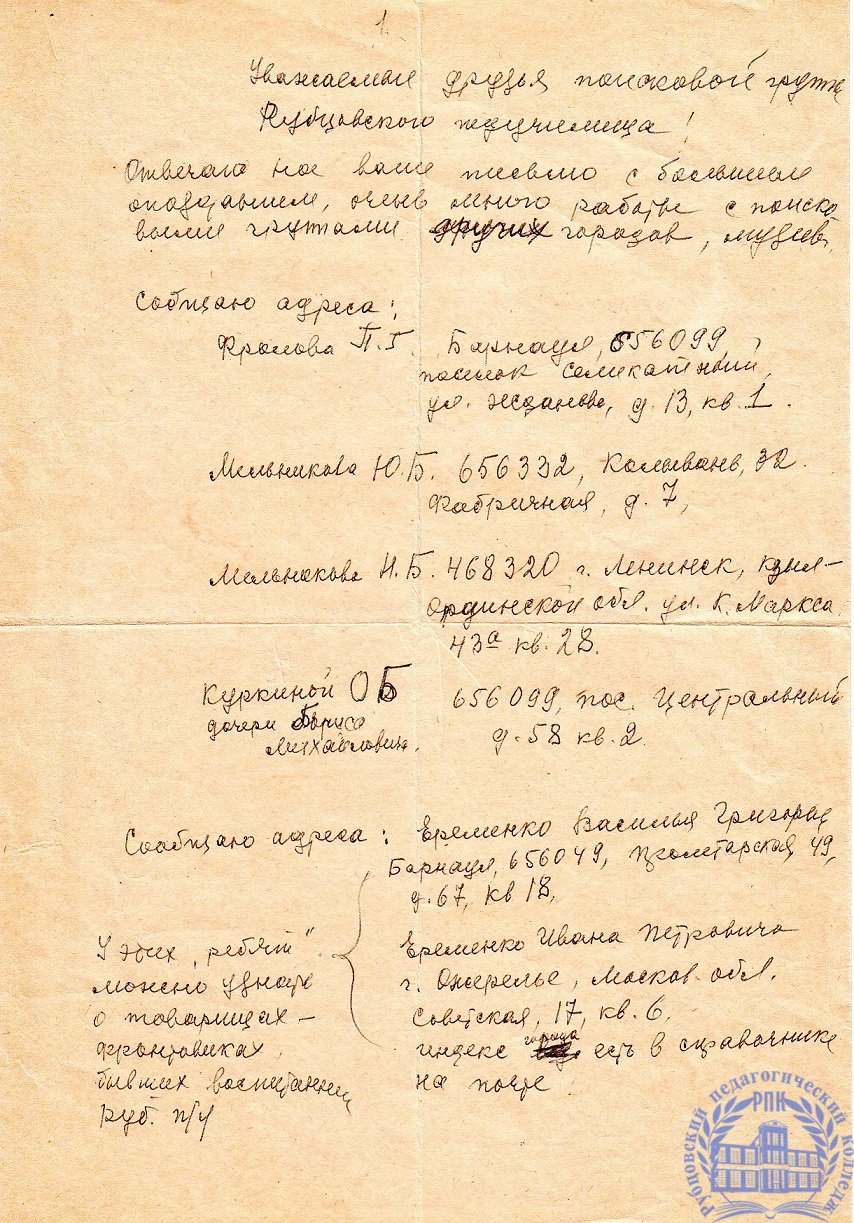 1.
Уважаемые друзья поисковой группы
Рубцовского педучилища!
Отвечаю на ваше письмо с большим
опозданием, очень много работы с поиско
выми группами других городов, музеев.
Сообщаю адреса:
Фролова П.Г. Барнаул, 656099,
поселок Силикатный,
ул. Жданова, д. 13, кв. 1.
Мельникова Ю.Б. 656332, Колывань, 32
Фабричная, д. 7,
Мельникова Н.Б. 468320 г. Ленинск, Кзыл-
Ординской обл. ул. К. Маркса
43а кв. 28.
Куркиной О Б 656099, пос. Центральный
дочери Бориса д. 58 кв. 2
Михайловича.
Сообщаю адреса: Еременко Василия Григорьев
Барнаул, 656049, Пролетарская, 49,
д. 67, кв 18,
У этих „ребят"
можно узнать
о товарищах –
фронтовиках
бывших воспитанниц
Руб. п/у
Еременко Ивана Петровича
г. Ожерелье, Москов. обл.
Советская, 17, кв. 6.
индекс города есть в справочнике
на почте
Рубцовский педагогический колледж
РПК